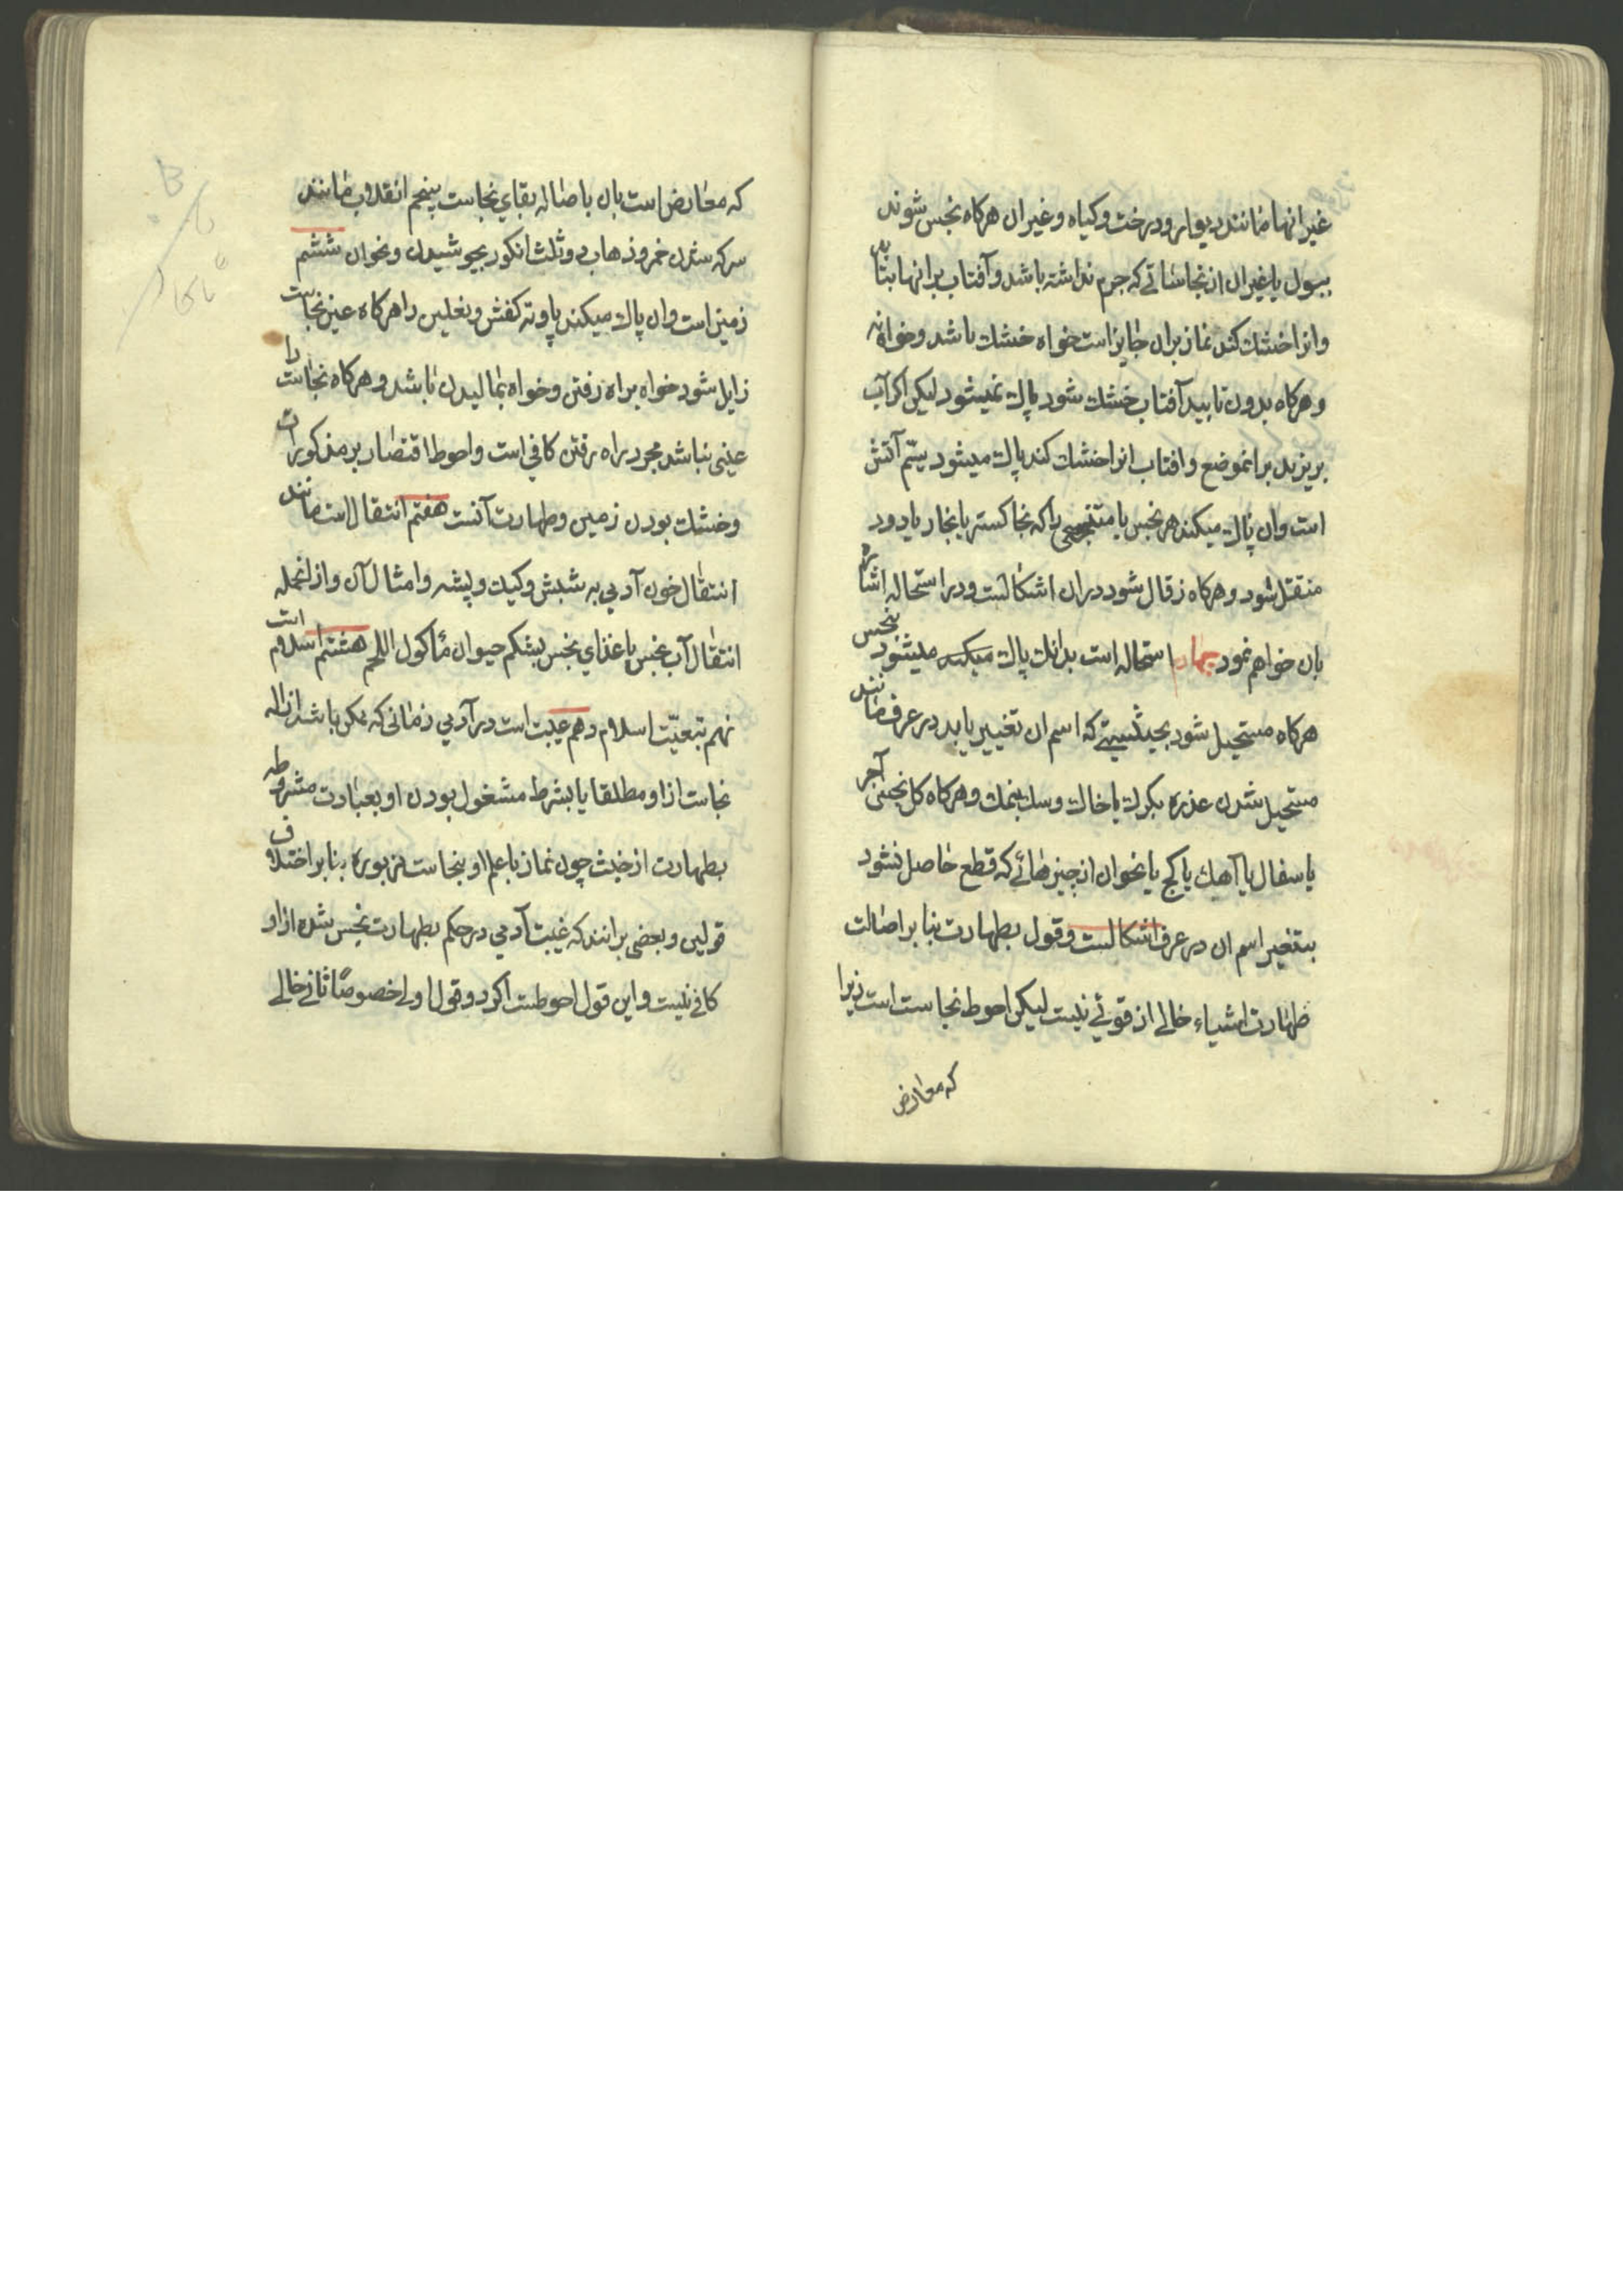 غیر انها مانند دیوار و درخت و کیاه و غیر ان هرکاه نجس شوند
ببول یا غیر ان از نجاساتی که جرم نداشته باشد و آفتاب بر انها بتابد
و انرا خشک کند نماز بران جایز است خواه خشک باشد و خواه نه
و هرکاه بدون تابید آفتاب خشک شود پاک نمیشود لیکن اکر آب
بریزید بر انموضع و افتاب انرا خشک کند پاک میشود سیّم آتش
است و ان پاک میکند هر نجس یا متنجسی را که بخاکستر یا بخار یا دود
منتقل شود و هرکاه زقال شود دران اشکالست و در استحاله اشاره
بان خواهم نمود چهارم استحاله است بدانک پاک میکند میشود نجس
هرکاه مستحیل شود بحیثیتی که اسم ان تغییر یابد در عرف مانند
مستحیل شدن عذره بکرک یا خاک و سک بنمک و هرکاه کل نجس آجر
یا سفال یا آهک یا کج یا نحو ان از چیزهائے که قطع حاصل نشود
بتغیر اسم ان در عرف اشکالست و قول بطهارت بنا بر اصالت
طهارت اشیاء خالے از قوتے نیست لیکن احوط نجاست است زیرا
که معارض
که معارض است بان باصاله بقای نجاست پنجم انقلاب مانند
سرکه شدن خمر و ذهاب دو ثلث انکور بجوشیدن و نحو ان ششم
زمین است و ان پاک میکند پا و ته کفش و نعلین را هرکاه عین نجاست
زایل شود خواه براه رفتن و خواه بمالیدن باشد و هرکاه نجاست را
عینی نباشد مجرد راه رفتن کافی است و احوط اقتصار بر مذکورات
و خشک بودن زمین و طهارت آنست هفتم انتقال است مانند
انتقال خون آدمی به شبش و کیک و پشه و امثال آن و از انجمله
انتقال آب نجس یا غذای نجس بشکم حیوان مأکول اللحم هشتم اسلام است
نهم تبعیّت اسلام دهم غیبت است در آدمی زمانی که ممکن باشد ازاله
نجاست از او مطلقا یا بشرط مشغول بودن او بعبادت مشروطه
بطهارت از خبث چون نماز با علم او بنجاست مزبوره بنا بر اختلاف
قولین و بعضی برانند که غیبت آدمی در حکم بطهارت نجس شده از او
کافے نیست و این قول احوطست اکر دو قول اول خصوصًا ثانے خالے